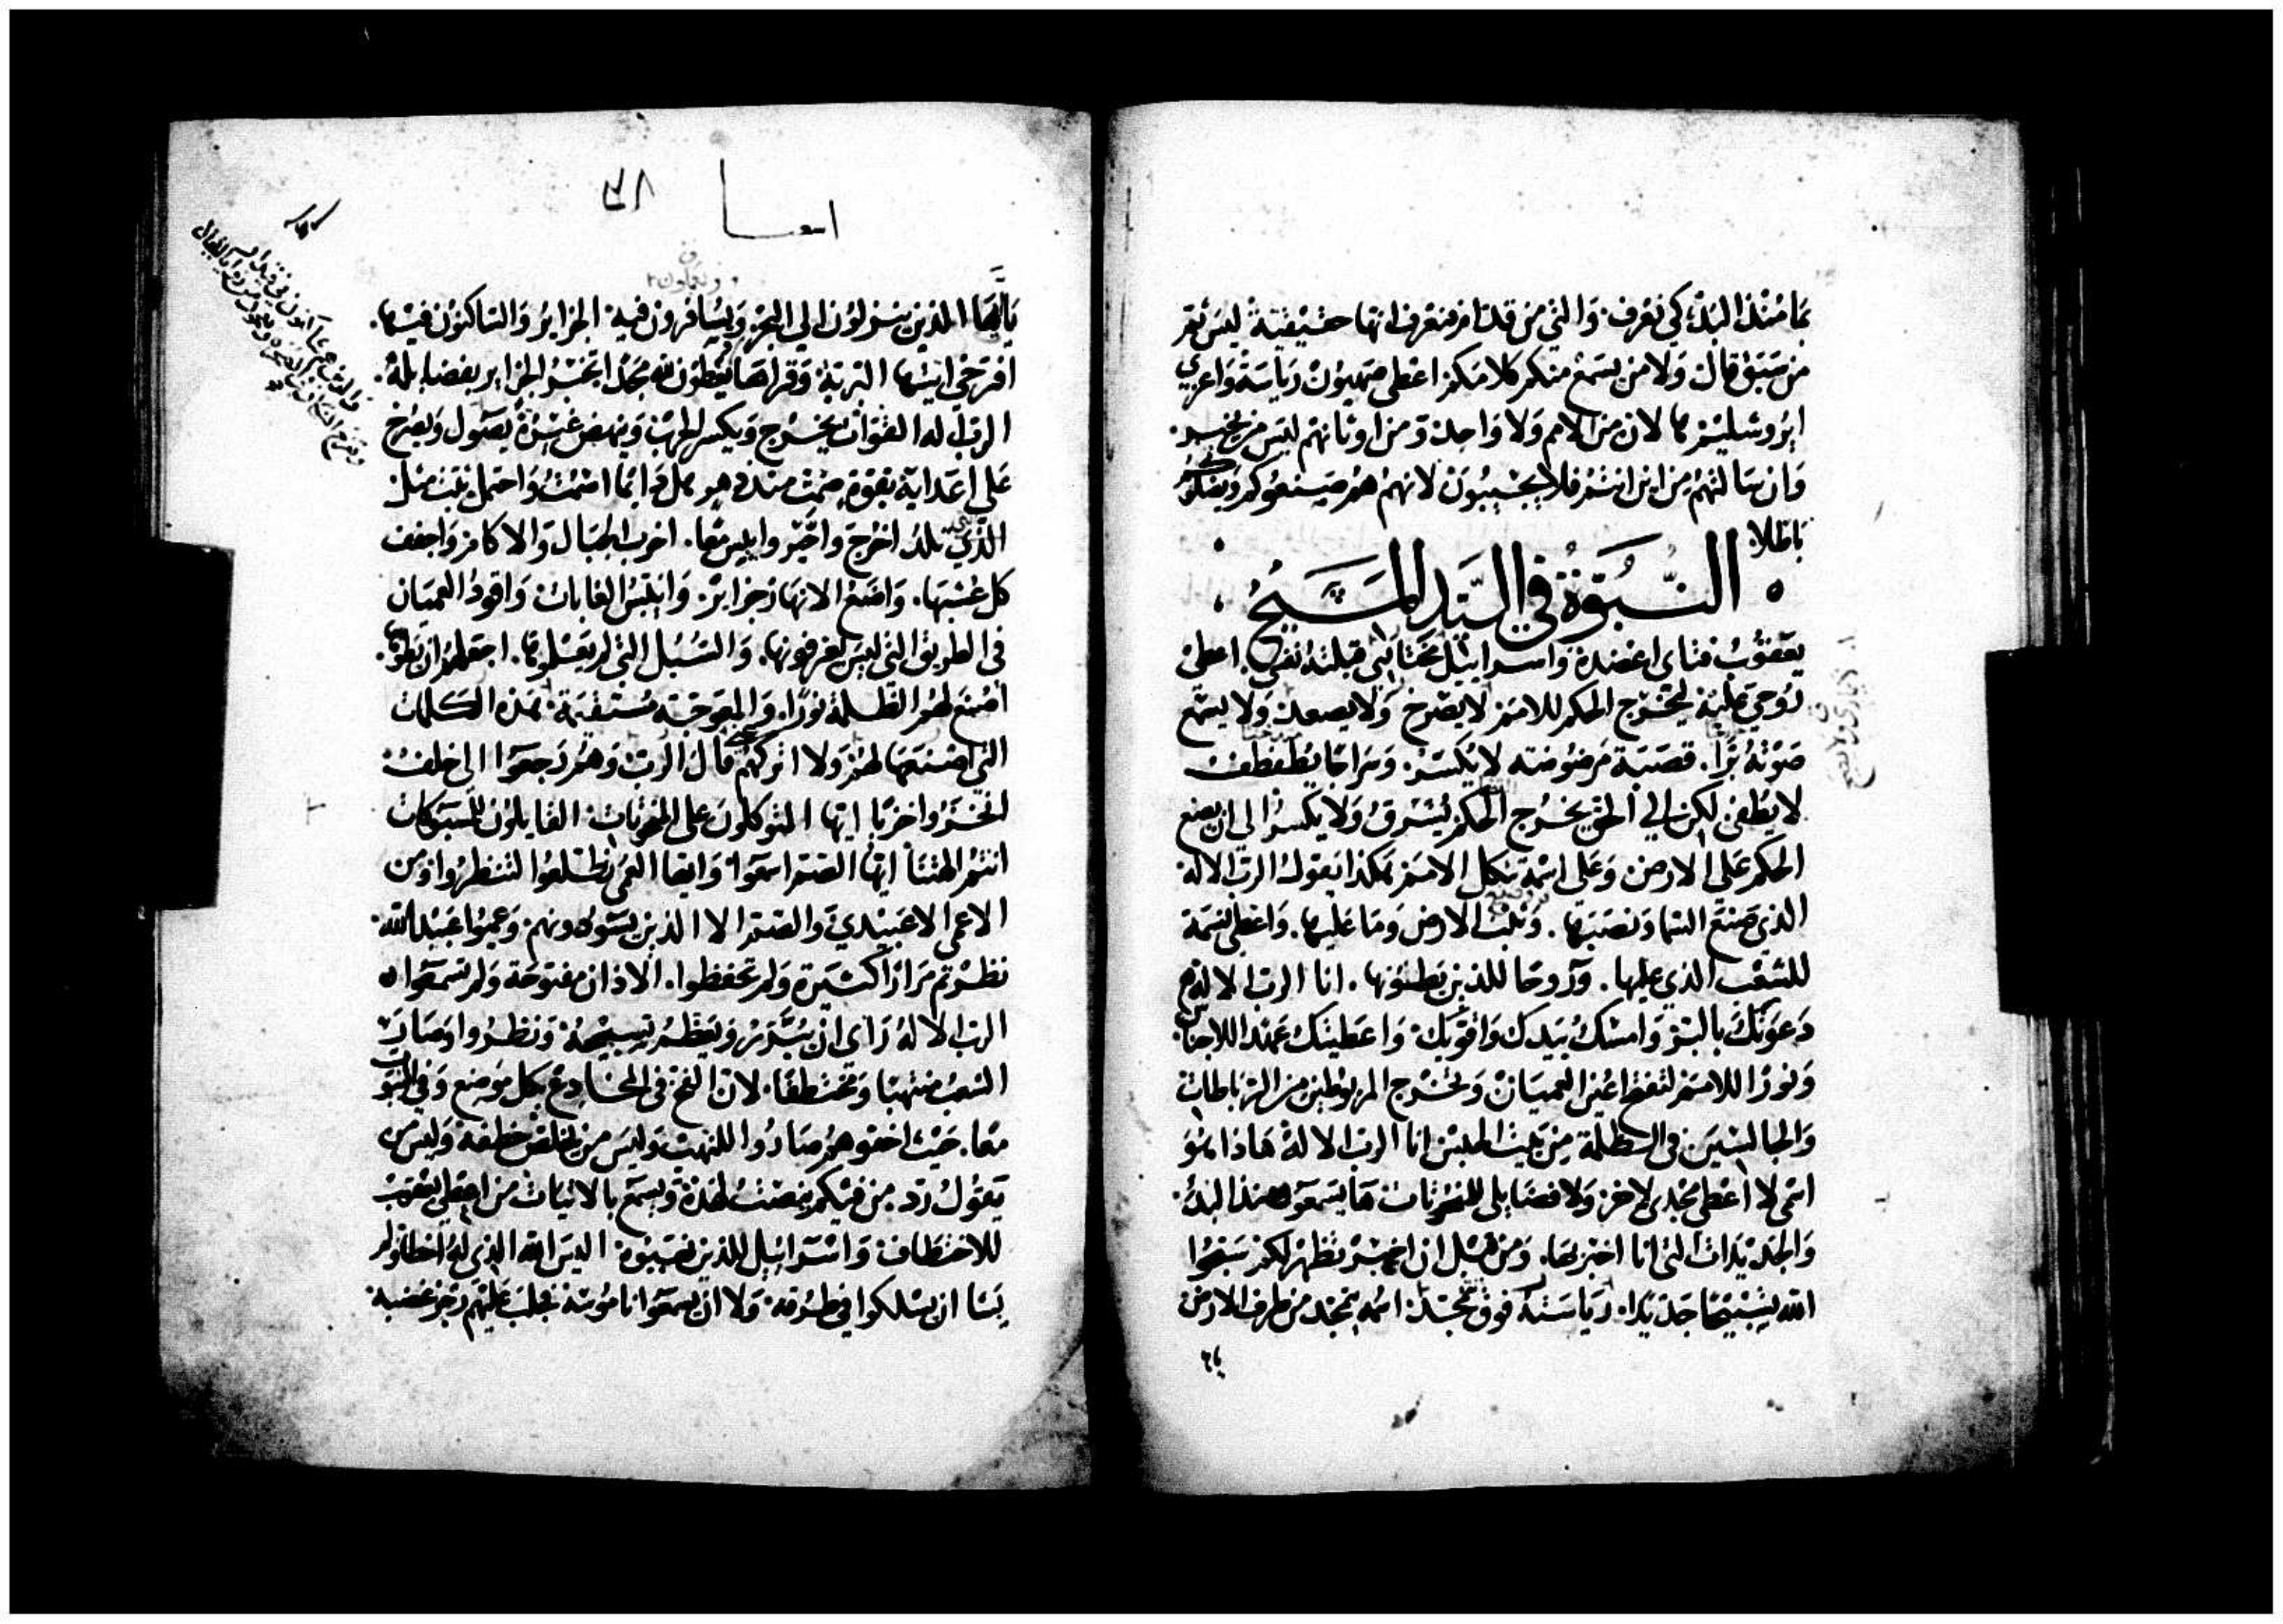 بما منذ البدء كي نعرف. والتي من قدام فنعرف انها حقيقية ليس
من سبق قال ولا من يسمع منكم كلامكم اعطي صهيون رياسة واعزي
ايروشليم لان من الامم ولا واحد ومن اوثانهم ليس من يخبر.
وان سالتهم من اين انتم فلا يجيبون لانهم هم صنعوكم
باطلا
النبوة في السيد المسيح
يعقوب فتاي اعضده واسراييل مختاري قبلته نفسي. اعطي
روحي عليه يخرج الحكم للامم لا يصرخ ولا يصعد ولا يسمع
صوته برا. قصبة مرضوضة لا يكسر. وسراجا يطفطف
لا يطفي لكن الي الحق يخرج الحكم يشرق ولا يكسر الي ان يضع
الحكم علي الارض وعلي اسمه تتكل الامم هكذا يقول الرب الاله
الذي صنع السما ونصبها. وثبت الارض وما عليها. واعطي نسمة
للشعب الذي عليها. وروحا للذين يطئونها. انا الرب الاله
دعوتك بالبر وامسك بيدك واقويك واعطيتك عهدا للاجناس
ونورا للامم لتفتح اعين العميان وتخرج المربوطين من الرباطات
والجالسين في الظلمة من بيت الحبس انا الرب الاله هاذا هو
اسمي لا اعطي مجدي لاخر ولا فضايلي للمنحوتات ها
والجديدات التي انا اخبر بها. ومن قبل ان اخبر تظهر لكم سبحوا
الله تسبيحا جديدا. رياسته فوق مجد اسمه يمجد من طرف الارض
٢٨
اشعيا
يا ايها الذين ينزلون الي البحر ويسافرون فيه الجزاير والساكنون فيها.
افرحي ايتها البرية وقراها يعطون لله مجدا تخبر الجزاير بفضايله.
الرب اله القوات يخرج ويكسر الحرب وينهض غيرة يصول ويصرخ
علي اعدايه بقوة صمت منذ دهر هل دايما اصمت واحتمل ثبت مثل
الذي تلد اخرج واحير وايبس معا. اخرب الجبال والاكام واجفف
كل عشبها. واصنع الانهار جزاير. وايبس الغابات واقود العميان
في الطريق التي ليس يعرفونها. والسبل التي لم يعلموها. اجعلهم ان يطوها.
اصنع لهم الظلمة نورا. والمعوجة مستقيمة هذه الكلمات
التي اصنعها لهم ولا اتركهم قال الرب وهم رجعوا الي خلف
اخزوا خزيا ايها المتوكلون علي المنحوتات القايلون للمسبوكات
انتم الهتنا ايها الصم اسمعوا وايها العمي تطلعوا لتنظروا ومن
الاعمي الا عبيدي والصم الا الذين يسودونهم. وعموا عبيد الله
نظرتم مرارا كثيرة ولم تحفظوا. الاذان مفتوحة ولم تسمعوا
الرب الاله راي ان يتبرر ويعظم تسبيحه ونظروا وصار
الشعب منتهبا ومختطفا. لان الفخ في المخادع بكل موضع وفي البيوت
معا. حيث اخفوهم صاروا للنهب وليس من يخلص خطفة وليس من
يقول رد. من فيكم ينصت لهذه ويسمع بالاتيات من اعطي يعقوب
للاختطاف واسراييل للذين نهبوه اليس الله الذي له اخطاوا ولم
يشا ان يسلكوا في طرقه ولا ان يسمعوا ناموسه فجلب عليهم رجز غضبه